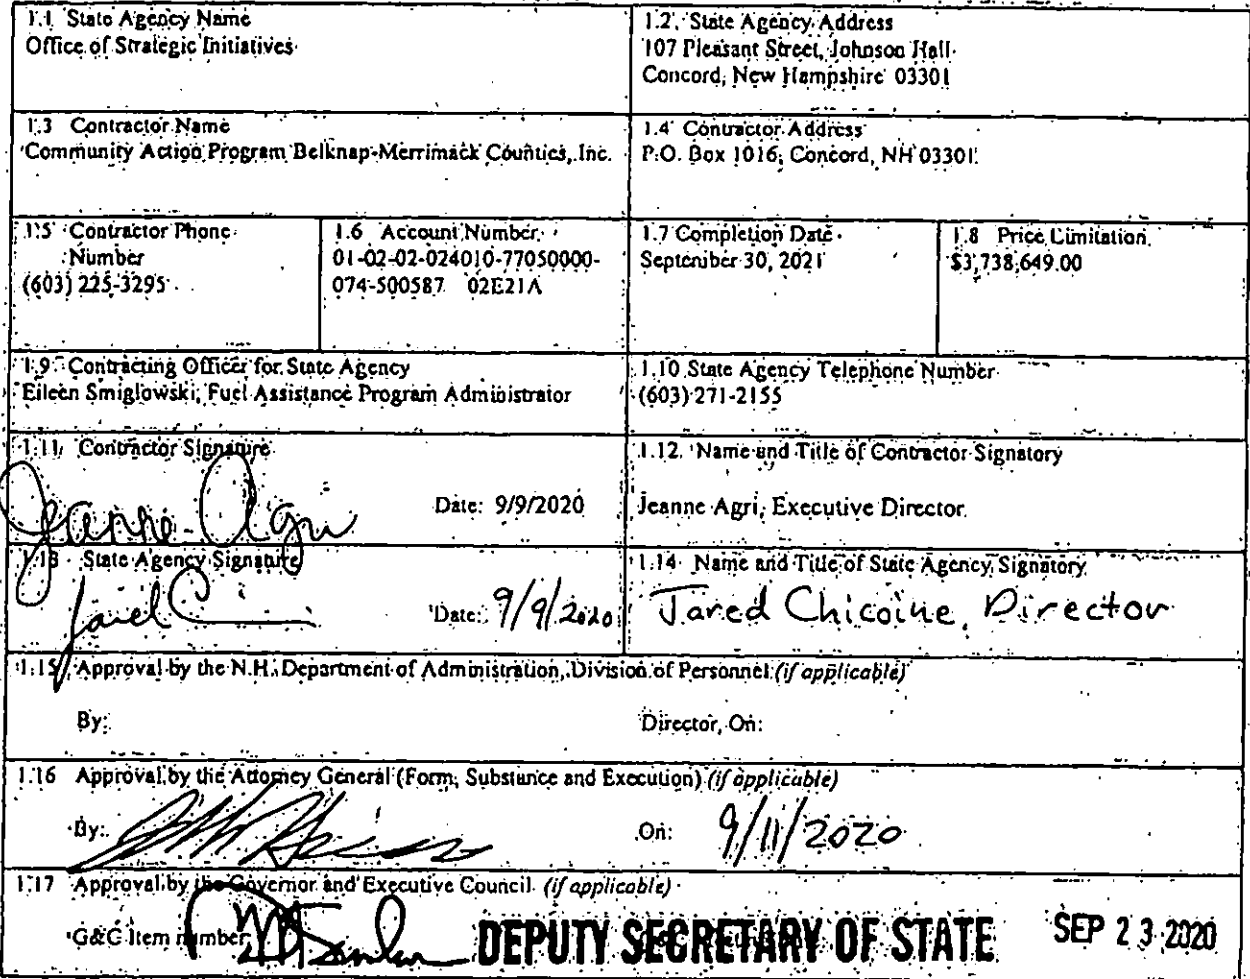 1.1 State Agency Name
Office of Strategic Initiatives
1.2. State Agency Address
107 Pleasant Street, Johnson Hall
Concord, New Hampshire 03301
1.3 Contractor Name
Community Action Program Belknap-Merrimack Counties, Inc.
1.4 Contractor Address
P.O. Box 1016, Concord, NH 03301
1.5 Contractor Phone
Number
(603) 225-3295
1.6 Account Number
01-02-02-024010-77050000-
074-500587 02E21A
1.7 Completion Date
September 30, 2021
1.8 Price Limitation
$3,738,649.00
1.9 Contracting Officer for State Agency
Eileen Smiglowski, Fuel Assistance Program Administrator
1.10 State Agency Telephone Number
(603) 271-2155
1.11 Contractor Signature
Jeanne Agri Date: 9/9/2020
1.12. Name and Title of Contractor Signatory
Jeanne Agri, Executive Director
1.13 State Agency Signature
Date: 9/9/2020
1.14 Name and Title of State Agency Signatory
Jared Chicoine, Director
1.15 Approval by the N.H. Department of Administration, Division of Personnel (if applicable)
By: Director, On:
1.16 Approval by the Attorney General (Form, Substance and Execution) (if applicable)
By: On: 9/11/2020
1.17 Approval by the Governor and Executive Council (if applicable)
G&C Item number DEPUTY SECRETARY OF STATE SEP 23 2020